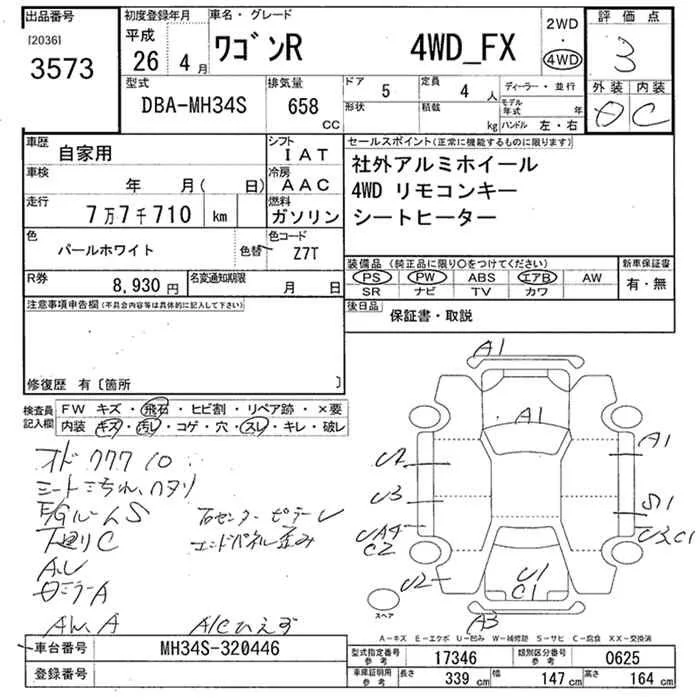 出品番号
[2036]
3573
初度登録年月
平成
26 4月
車名・グレード
ワゴンR 4WD_FX
2WD
・
4WD
評価点
3
外装 内装
C
型式
DBA-MH34S
排気量
658
CC
ドア
5
定員
4 人
形状
積載
kg
ディーラー・並行
モデル年式 年
ハンドル 左・右
車歴
自家用
シフト
IAT
車検
年 月( 日)
冷房
AAC
走行
7万7千710 km
燃料
ガソリン
色
パールホワイト
色替
色コード
Z7T
R券
8,930 円
名変通知期限
月 日
セールスポイント(正常に機能するものに限ります)
社外アルミホイール
4WD リモコンキー
シートヒーター
装備品 (純正品に限り○をつけてください)
PS PW ABS エアB AW
SR ナビ TV カワ
新車保証書
有・無
後日品
保証書・取説
注意事項申告欄(不具合内容等は具体的に記入して下さい)
修復歴 有〔箇所 〕
検査員記入欄
FW キズ・飛石・ヒビ割・リペア跡・×要
内装 キズ・汚レ・コゲ・穴・スレ・キレ・破レ
オド 77710
E/Gルーム S
下廻り C
A.U
ミラーA
AW.A
A/Cひえず
エンドパネル歪み
A1
A1
A1
U2
U3
S1
UA4
C2
U3,C1
U2
U1
C1
A3
スペア
A－キズ E－エクボ U－凹み W－補修跡 S－サビ C－腐食 XX－交換済
車台番号
MH34S-320446
登録番号
型式指定番号
参考
17346
類別区分番号
参考
0625
車庫証明用
参考
長さ
339 cm
幅
147 cm
高さ
164 cm